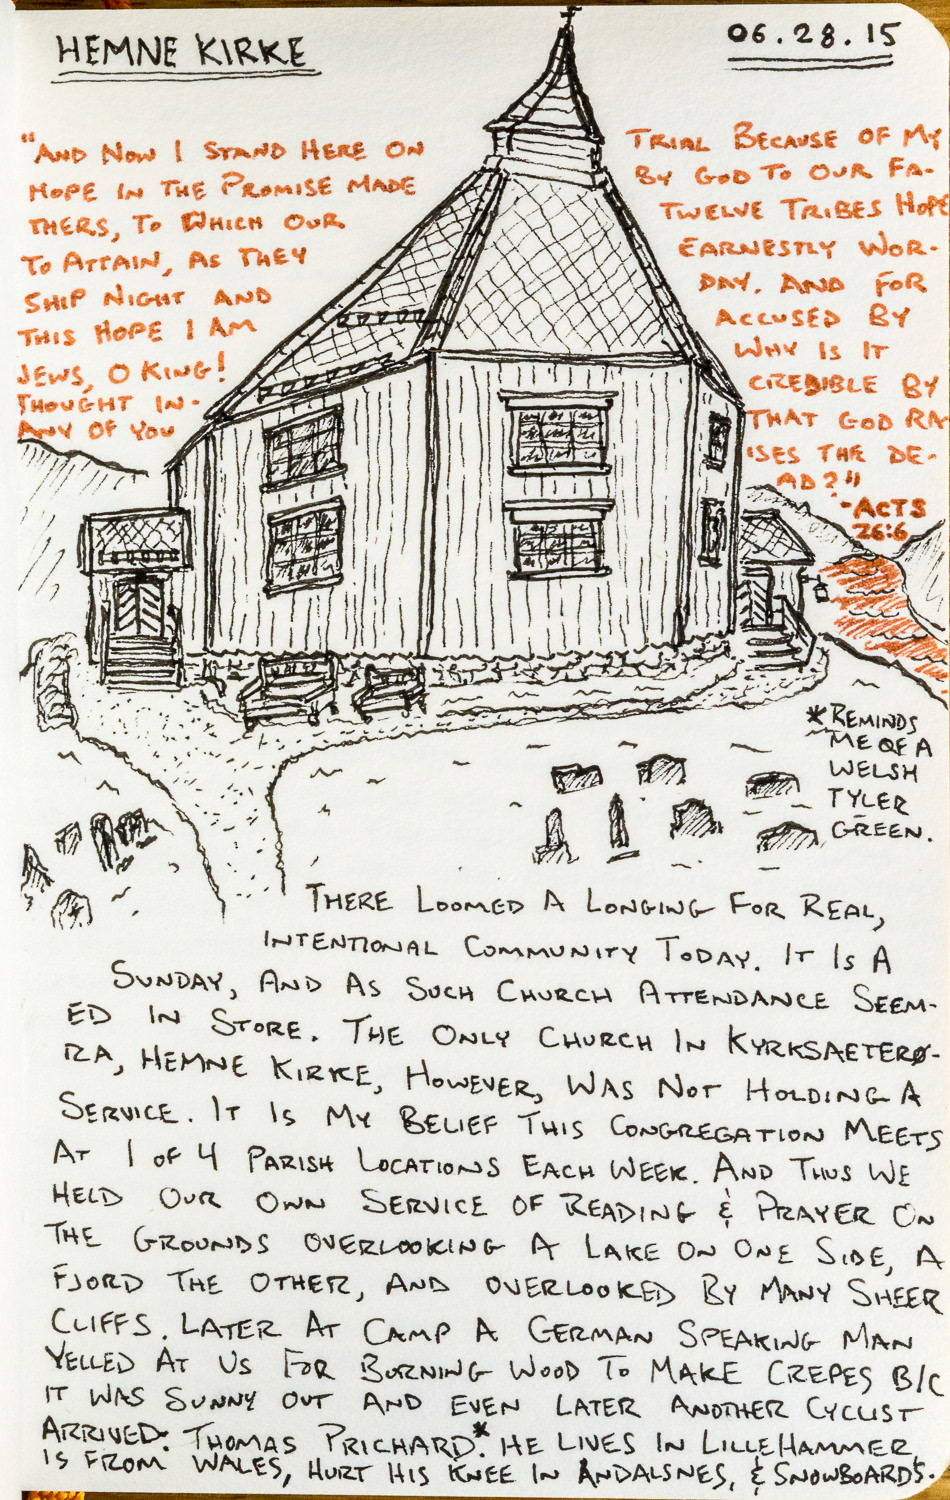 HEMNE KIRKE
06.28.15
"AND NOW I STAND HERE ON TRIAL BECAUSE OF MY
HOPE IN THE PROMISE MADE BY GOD TO OUR FA-
THERS, TO WHICH OUR TWELVE TRIBES HOPE
TO ATTAIN, AS THEY EARNESTLY WOR-
SHIP NIGHT AND DAY. AND FOR
THIS HOPE I AM ACCUSED BY
JEWS, O KING! WHY IS IT
THOUGHT IN- CREDIBLE BY
ANY OF YOU THAT GOD RA
ISES THE DE-
AD?"
-ACTS
26:6
*REMINDS
ME OF A
WELSH
TYLER
GREEN.
THERE LOOMED A LONGING FOR REAL,
INTENTIONAL COMMUNITY TODAY. IT IS A
SUNDAY, AND AS SUCH CHURCH ATTENDANCE SEEM-
ED IN STORE. THE ONLY CHURCH IN KYRKSAETERØ-
RA, HEMNE KIRKE, HOWEVER, WAS NOT HOLDING A
SERVICE. IT IS MY BELIEF THIS CONGREGATION MEETS
AT 1 OF 4 PARISH LOCATIONS EACH WEEK. AND THUS WE
HELD OUR OWN SERVICE OF READING & PRAYER ON
THE GROUNDS OVERLOOKING A LAKE ON ONE SIDE, A
FJORD THE OTHER, AND OVERLOOKED BY MANY SHEER
CLIFFS. LATER AT CAMP A GERMAN SPEAKING MAN
YELLED AT US FOR BURNING WOOD TO MAKE CREPES B/C
IT WAS SUNNY OUT AND EVEN LATER ANOTHER CYCLIST
ARRIVED: THOMAS PRICHARD.* HE LIVES IN LILLEHAMMER,
IS FROM WALES, HURT HIS KNEE IN ANDALSNES, & SNOWBOARDS.